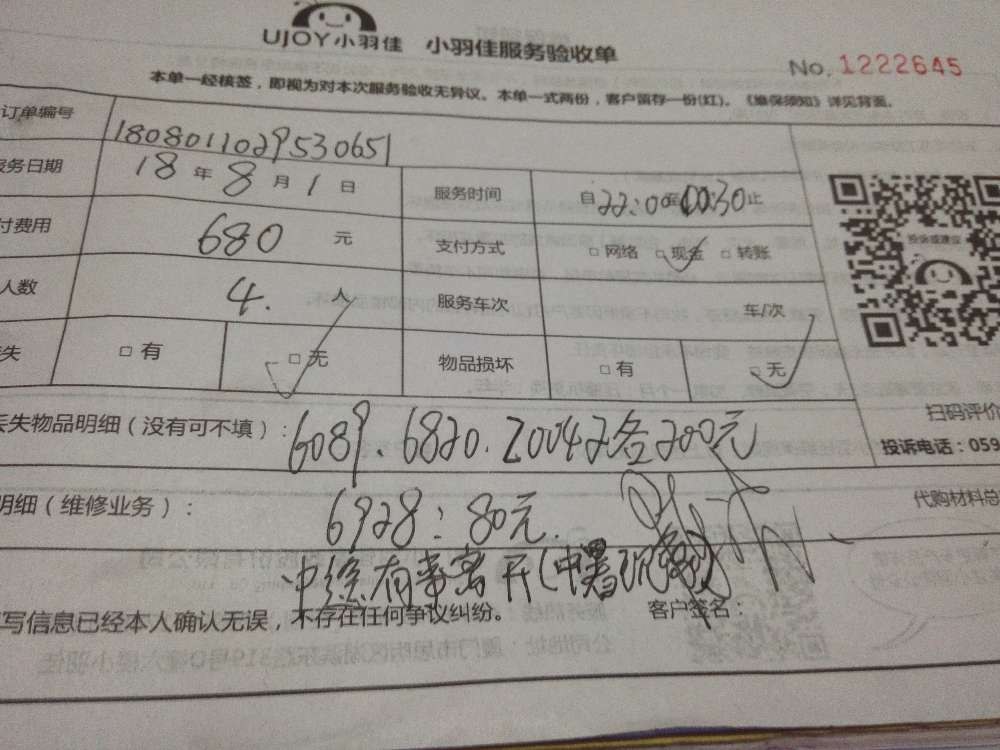 UJOY小羽佳 小羽佳服务验收单
No. 1222645
本单一经核签，即视为对本次服务验收无异议。本单一式两份，客户留存一份(红)。《维保须知》详见背面。
订单编号 1808011029530651
服务日期 18年8月1日 服务时间 自22:00至00:30止
付费用 680元 支付方式 □网络 □现金 □转账
人数 4.人 服务车次 车/次
失 □有 □无 物品损坏 □有 □无
投诉或建议
扫码评价
投诉电话：059
丢失物品明细（没有可不填）：6089.6820.20042各200元
明细（维修业务）：6928：80元.
代购材料总
中途有事离开(中暑
写信息已经本人确认无误，不存在任何争议纠纷。 客户签名：